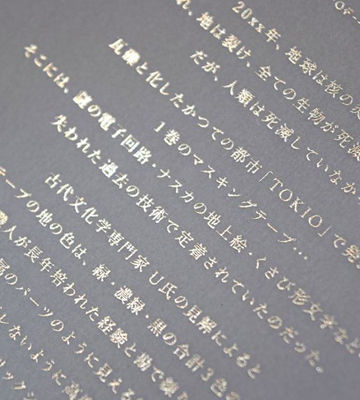 20xx年、地球は核の
れ、地は裂け、全ての生物が死滅
だが、人類は死滅していなか
瓦礫と化したかつての都市「TOKIO」で発
1巻のマスキングテープ…
そこには、謎の電子回路・ナスカの地上絵・くさび形文字など
失われた過去の技術で定着されていたのだった。
古代文化学専門家U氏の見解によると
テープの地の色は、緑・濃緑・黒の合計3色の
人が長年培われた経験と勘で
属のパーツのように見える
したいように